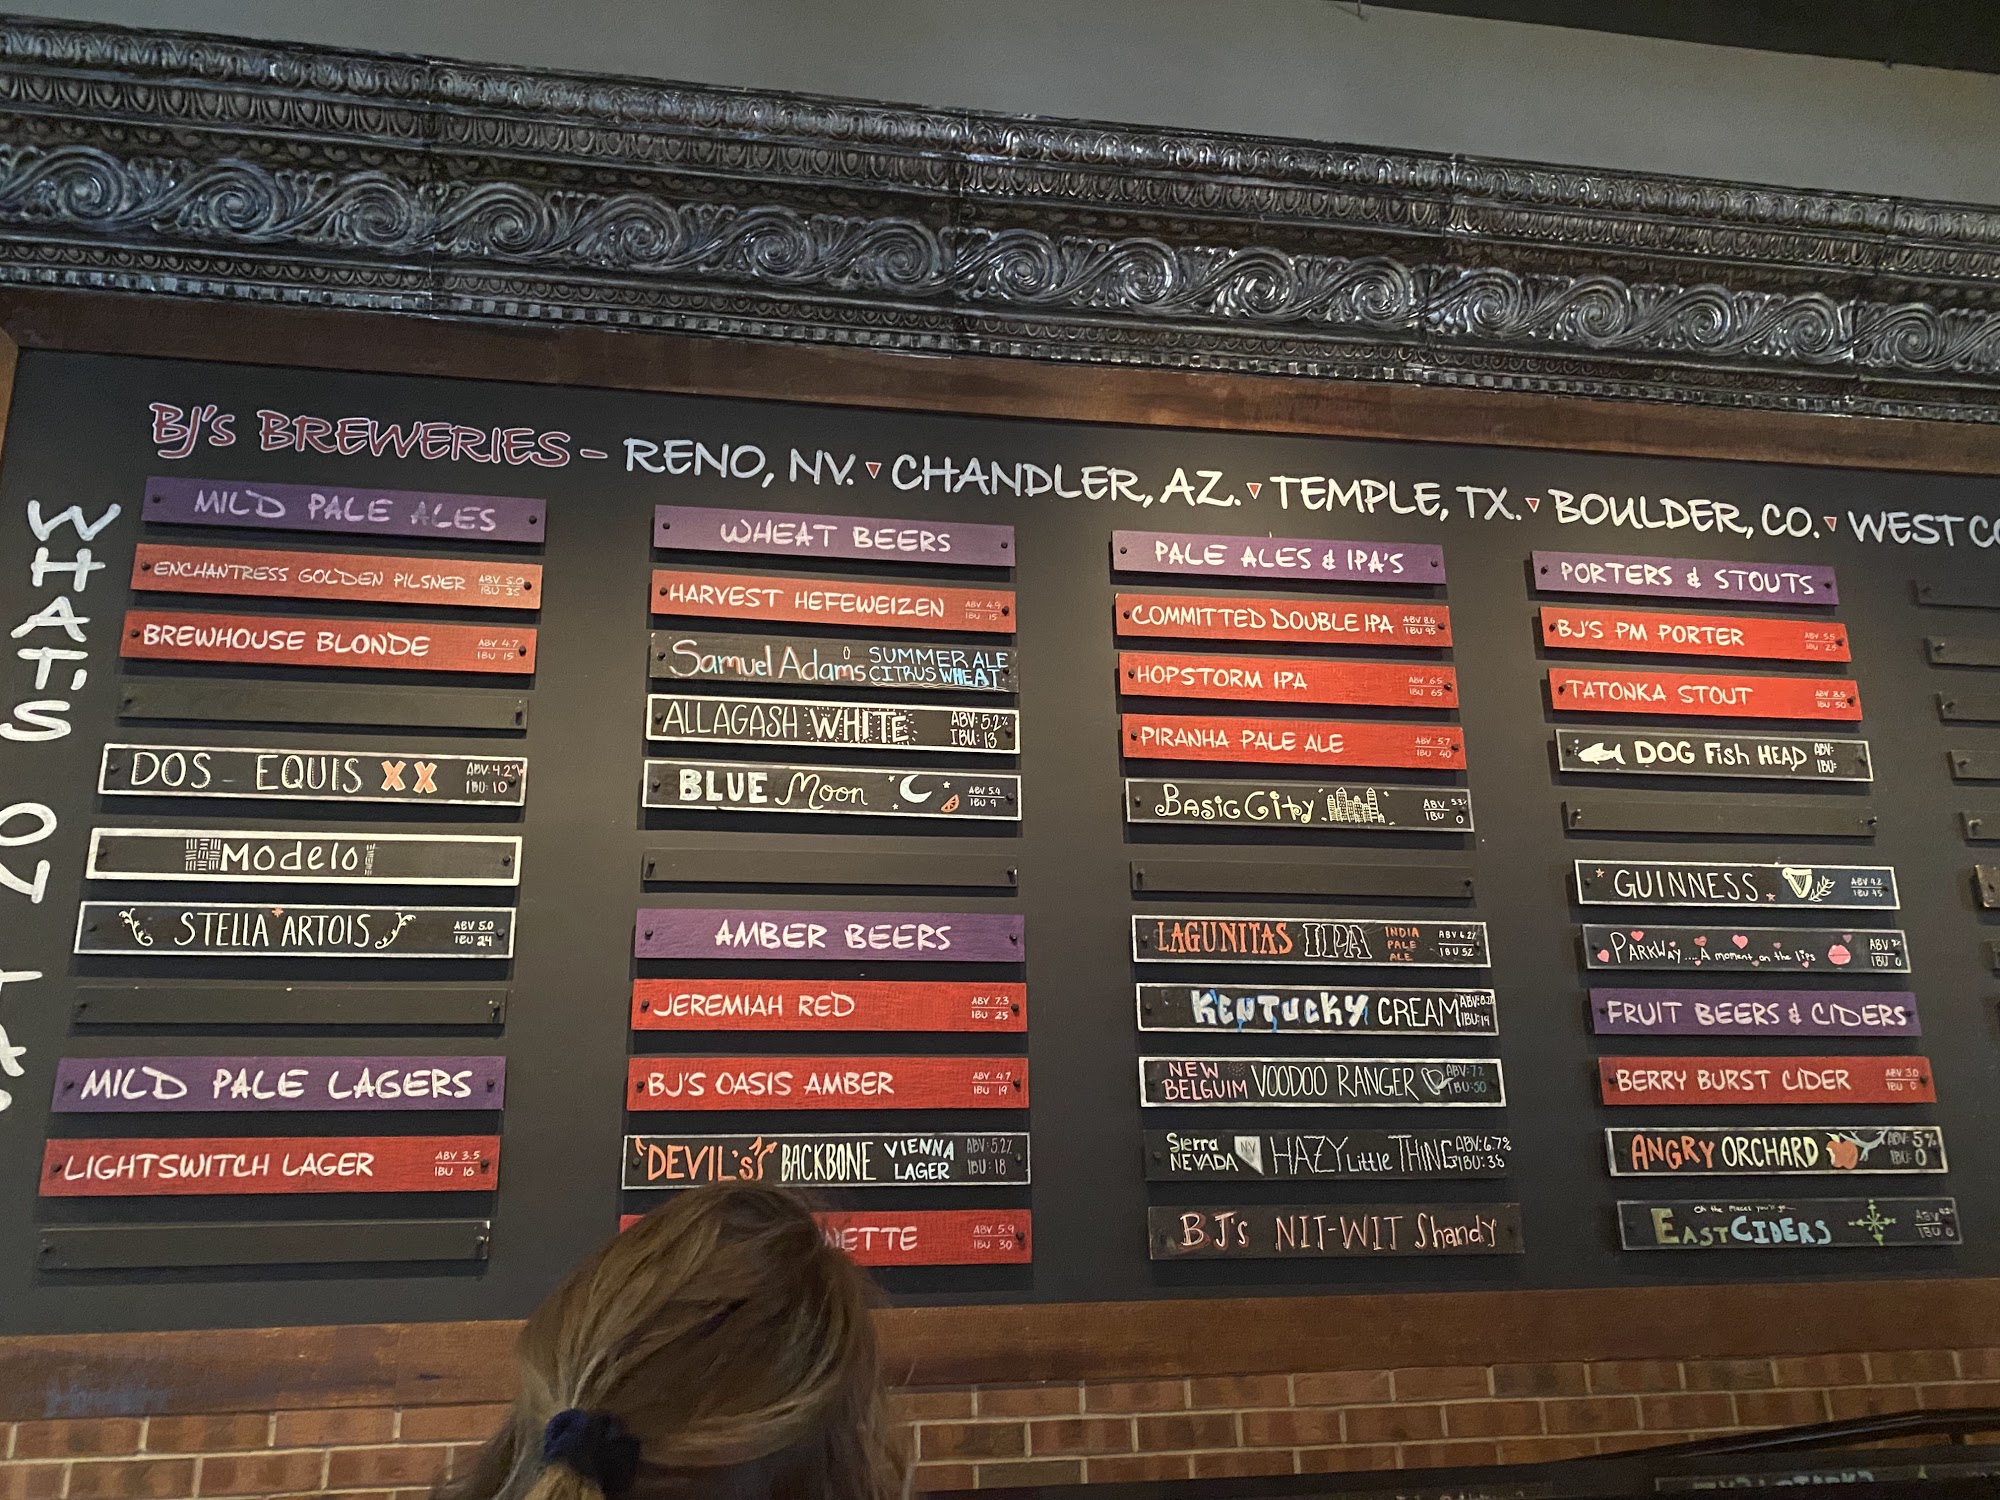 BJ's BREWERIES – RENO, NV. ▾ CHANDLER, AZ. ▾ TEMPLE, TX. ▾ BOULDER, CO. ▾ WEST CO
WHAT'S
MILD PALE ALES
ENCHANTRESS GOLDEN PILSNER ABV 5.0 IBU 35
BREWHOUSE BLONDE ABV 4.7 IBU 15
DOS - EQUIS XX ABV: 4.2% IBU: 10
Modelo
STELLA ARTOIS ABV 5.0 IBU 24
MILD PALE LAGERS
LIGHTSWITCH LAGER ABV 3.5 IBU 16
WHEAT BEERS
HARVEST HEFEWEIZEN ABV 4.9 IBU 15
Samuel Adams SUMMER ALE CITRUS WHEAT
ALLAGASH WHITE ABV: 5.2% IBU: 13
BLUE Moon ABV 5.4 IBU 9
AMBER BEERS
JEREMIAH RED ABV 7.3 IBU 25
BJ'S OASIS AMBER ABV 4.7 IBU 19
DEVIL'S BACKBONE VIENNA LAGER ABV: 5.2% IBU: 18
NETTE ABV 5.9 IBU 30
PALE ALES & IPA'S
COMMITTED DOUBLE IPA ABV 8.6 IBU 95
HOPSTORM IPA ABV 6.5 IBU 65
PIRANHA PALE ALE ABV 5.7 IBU 40
BASIC CITY ABV 5.3% IBU 0
LAGUNITAS IPA INDIA PALE ALE ABV 6.2% IBU 52
KENTUCKY CREAM ABV: 8.2% IBU: 19
NEW BELGUIM VOODOO RANGER ABV: 7.2 IBU: 50
Sierra NEVADA NV HAZY Little THING ABV: 6.7% IBU: 35
BJ's NIT-WIT Shandy
PORTERS & STOUTS
BJ'S PM PORTER ABV 5.5 IBU 25
TATONKA STOUT ABV 8.5 IBU 50
DOG Fish HEAD ABV: IBU:
GUINNESS ABV 4.2 IBU 45
PARKWAY.... A moment on the lips ABV 7% IBU 0
FRUIT BEERS & CIDERS
BERRY BURST CIDER ABV 3.0 IBU 0
ANGRY ORCHARD ABV: 5% IBU: 0
Oh the places you'll go...
EASTCIDERS ABV IBU 0